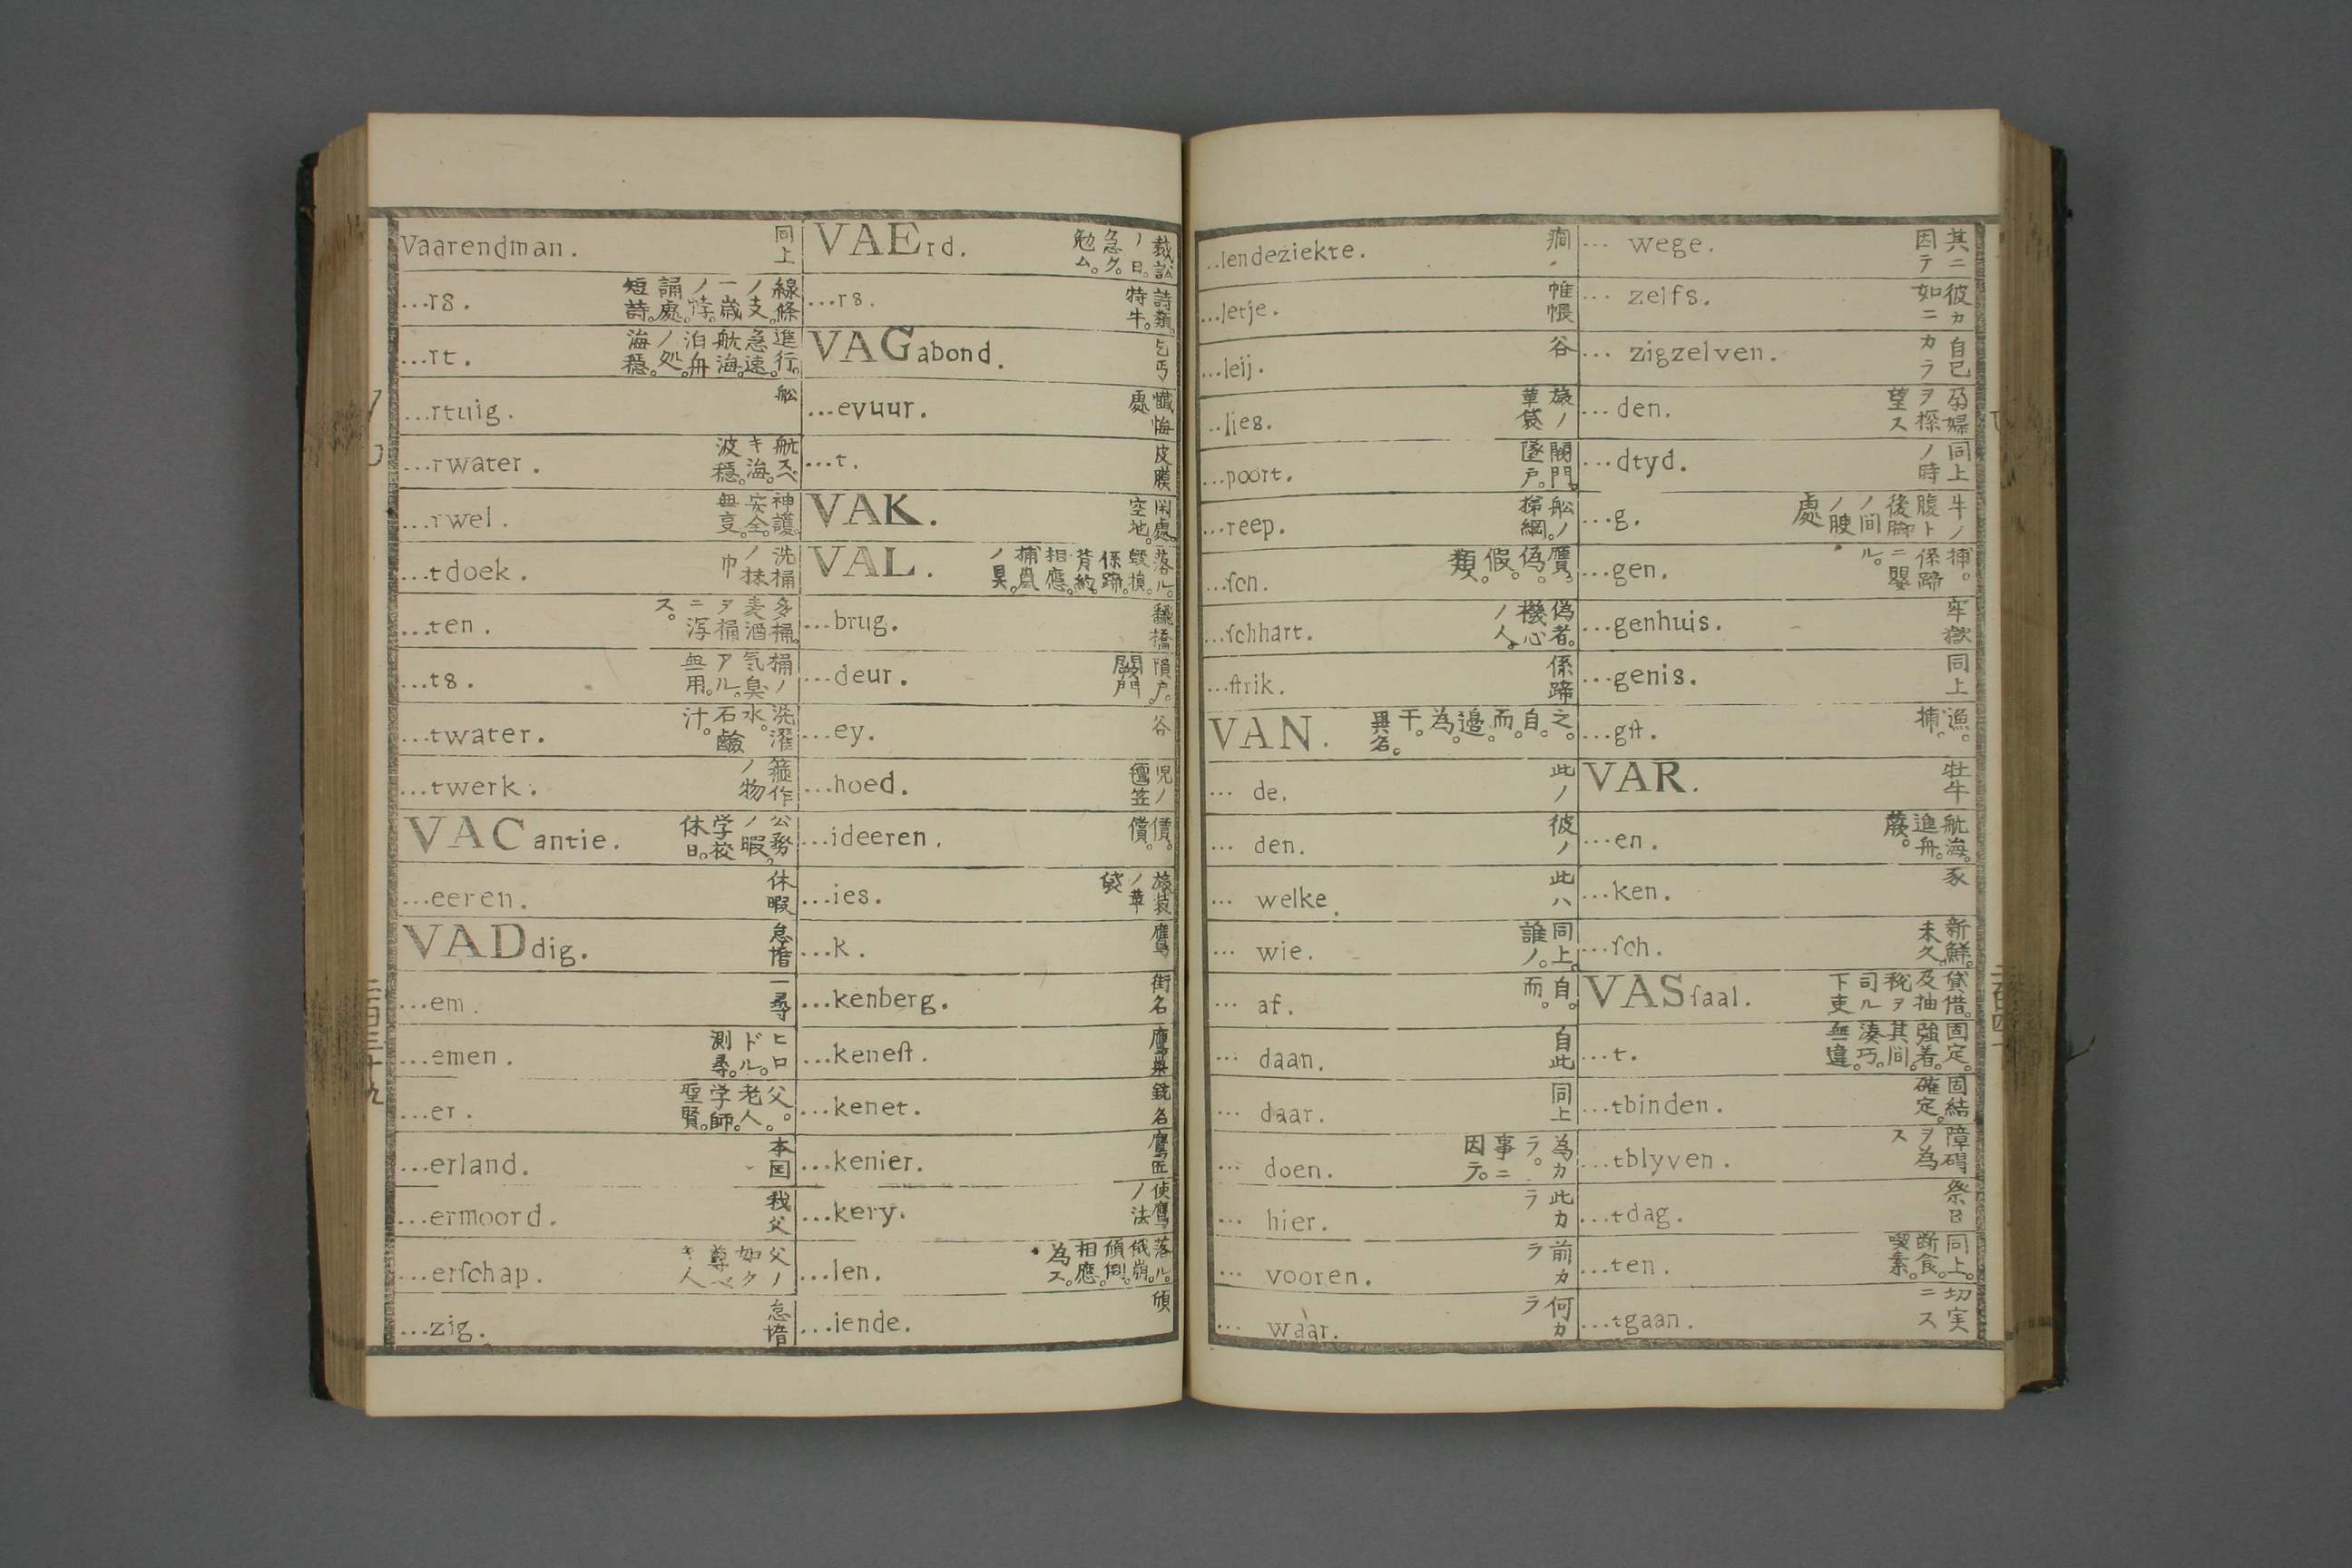 Vaarendman. 同上
...rs. 線條ノ支。一歳ノ悖。誦處。短詩。
...rt. 進行。急速。航海。泊舟ノ処。海穏。
...rtuig. 舩
...rwater. 航スベキ海。波穏。
...rwel. 神護。安全。無変。
...tdoek. 洗桶ノ抹巾
...ten. 多桶。麦酒ヲ桶ニ泻ス。
...ts. 桶ノ気臭アル。無用。
...twater. 洗濯水。石鹸汁。
...twerk. 箍作ノ物
VACantie. 公務ノ暇。学校休日。
...eeren. 休暇
VADdig. 怠惰
...em. 一尋
...emen. ヒロドル。測尋。
...er. 父。老人。学師。聖賢。
...erland. 本国
...ermoord. 我父
...erſchap. 父ノ如ク尊ベキ人
...zig. 怠惰
VAErd. 裁訟ノ日。急グ。勉ム。
...rs. 詩類。特牛。
VAGabond. 乞丐
...evuur. 懺悔處
...t. 皮膜
VAK. 闲處。空地。
VAL. 落ル。毀損。係蹄。背約。相應。捕鼠ノ具。
...brug. 橋
...deur. 隕戸。闕門
...ey. 谷
...hoed. 児ノ氊笠
...ideeren. 價。償。
...ies. 旅装ノ革袋
...k. 鷹
...kenberg. 街名
...keneſt. 鷹巣
...kenet. 銃名
...kenier. 鷹匠
...kery. 使鷹ノ法
...len. 落ル。俄崩。傾倒。相應。為ス。
...iende. 傾
...lendeziekte. 癇
...letje. 帷帳
...leij. 谷
...lies. 旅ノ革袋
...poort. 闕門。墜戸。
...reep. 舩ノ梯綱。
...ſch. 贋。偽。假。類。
...ſchhart. 偽者。機心ノ人
...ſtrik. 係蹄
VAN. 之。自。而。邉。為。干。異名。
... de. 此ノ
... den. 彼ノ
... welke. 此ハ
... wie. 同上。誰ノ。
... af. 自。而。
... daan. 自此
... daar. 同上
... doen. 為カラ。事ニ因テ。
... hier. 此カラ
... vooren. 前カラ
... waar. 何カラ
... wege. 其ニ因テ
... zelfs. 彼カ如ニ
... zigzelven. 自己カラ
...den. 孕婦ヲ探望ス
...dtyd. 同上ノ時
...g. 牛ノ腹ト後脚ノ间ノ腴處
...gen. 捕。係蹄ニ嬰ル。
...genhuis. 牢獄
...genis. 同上
...gſt. 漁。捕。
VAR. 牡牛
...en. 航海。進舟。蕨。
...ken. 豕
...ſch. 新鮮。未久。
VASſaal. 貸借。及抽税ヲ司ル下吏
...t. 固定。強着。其间湊巧。無違。
...tbinden. 固結確定。
...tblyven. 障碍ヲ為ス
...tdag. 祭日
...ten. 同上。断食。喫素。
...tgaan. 切実ニス